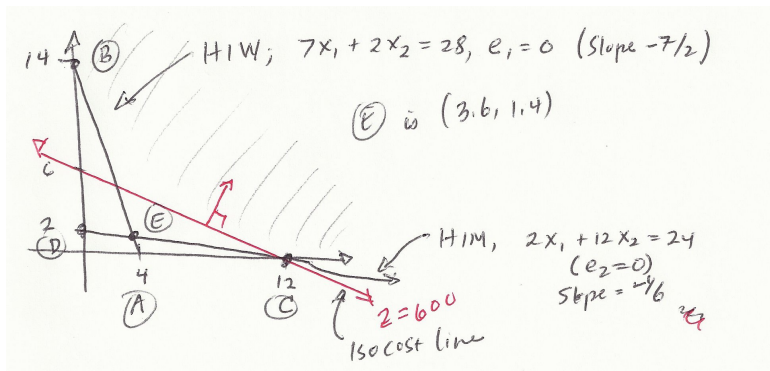 14 B HIW; 7x₁ + 2x₂ = 28, e₁ = 0 (Slope -7/2)
E is (3.6, 1.4)
6
2 E
D HIM, 2x₁ + 12x₂ = 24
4 12 (e₂=0)
A C Slope = -1/6
Z=600
Isocost line